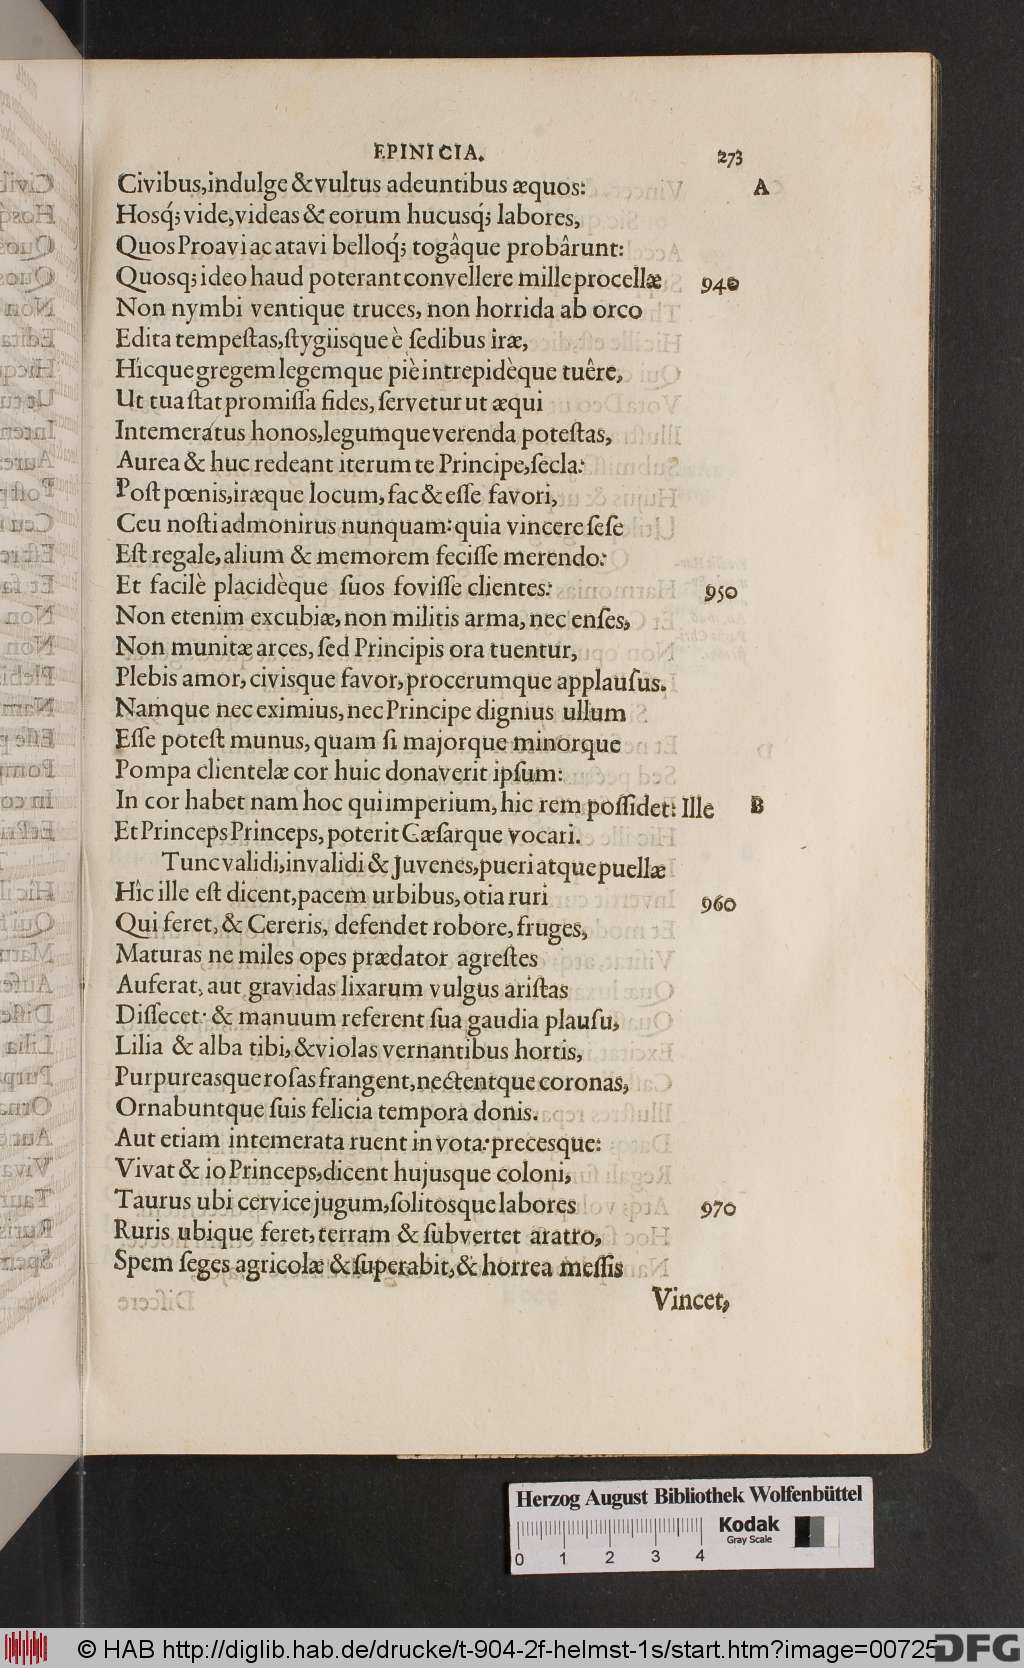 EPINICIA. 273
Civibus,indulge & vultus adeuntibus æquos: A
Hosq́; vide,videas & eorum hucusq́; labores,
Quos Proavi ac atavi belloq́; togâque probârunt:
Quosq; ideo haud poterant convellere mille procellæ 940
Non nymbi ventique truces, non horrida ab orco
Edita tempeſtas,ſtygiisque è ſedibus iræ,
Hicque gregem legemque piè intrepidèque tuêre,
Ut tua ſtat promiſſa fides, ſervetur ut æqui
Intemeratus honos,legumque verenda poteſtas,
Aurea & huc redeant iterum te Principe,ſecla:
Poſt pœnis,iræque locum, fac & eſſe favori,
Ceu noſti admonirus nunquam: quia vincere ſeſe
Eſt regale,alium & memorem feciſſe merendo:
Et facilè placidèque ſuos foviſſe clientes: 950
Non etenim excubiæ,non militis arma, nec enſes,
Non munitæ arces, ſed Principis ora tuentur,
Plebis amor, civisque favor,procerumque applauſus.
Namque nec eximius, nec Principe dignius ullum
Eſſe poteſt munus, quam ſi majorque minorque
Pompa clientelæ cor huic donaverit ipſum:
In cor habet nam hoc qui imperium, hic rem poſſidet: Ille B
Et Princeps Princeps, poterit Cæſarque vocari.
Tunc validi,invalidi & Juvenes,pueri atque puellæ
Hîc ille eſt dicent,pacem urbibus, otia ruri 960
Qui feret, & Cereris, defendet robore, fruges,
Maturas ne miles opes prædator agreſtes
Auferat, aut gravidas lixarum vulgus ariſtas
Diſſecet: & manuum referent ſua gaudia plauſu,
Lilia & alba tibi, & violas vernantibus hortis,
Purpureasque roſas frangent,nectentque coronas,
Ornabuntque ſuis felicia tempora donis.
Aut etiam intemerata ruent in vota: precesque:
Vivat & io Princeps,dicent hujusque coloni,
Taurus ubi cervice jugum,ſolitosque labores 970
Ruris ubique feret, terram & ſubvertet aratro,
Spem ſeges agricolæ & ſuperabit,& horrea meſſis
Vincet,
Herzog August Bibliothek Wolfenbüttel
Kodak
Gray Scale
0 1 2 3 4
© HAB http://diglib.hab.de/drucke/t-904-2f-helmst-1s/start.htm?image=00725
DFG